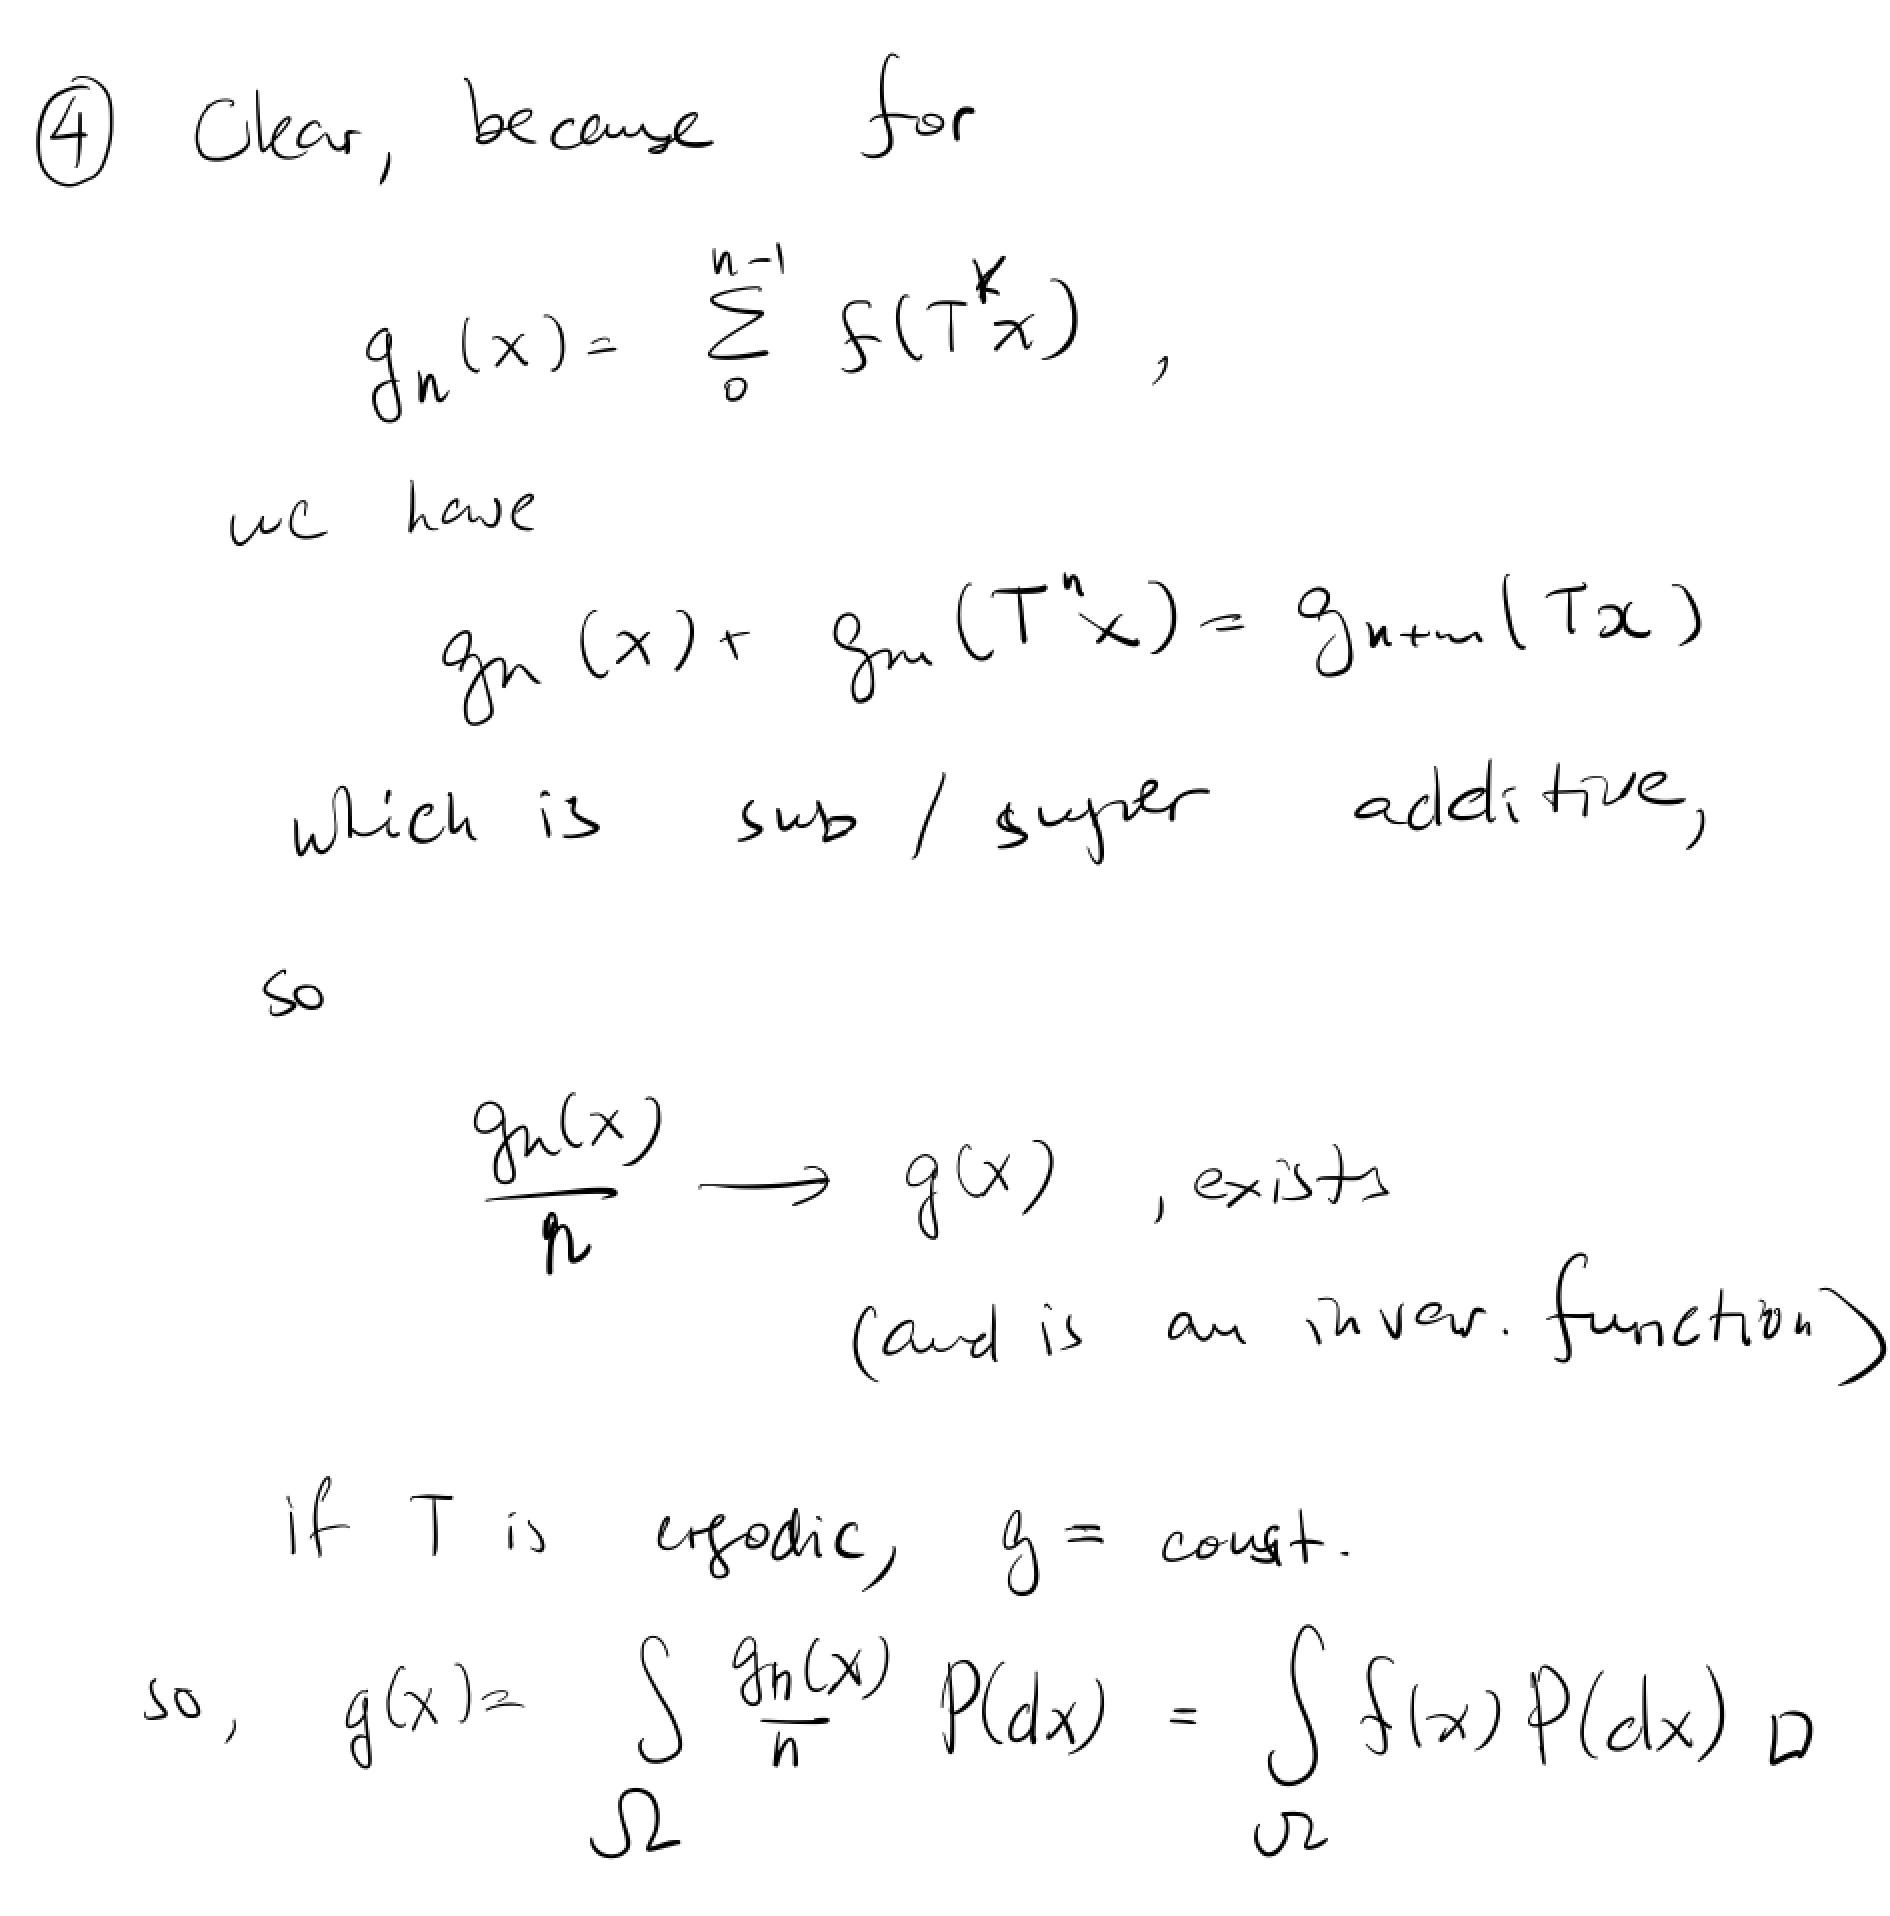 ④ Clear, because for
gₙ(x) = Σ₀ⁿ⁻¹ f(Tᵏx) ,
we have
gₙ(x) + gₘ(Tⁿx) = gₙ₊ₘ(Tx)
which is sub / super additive,
so
gₙ(x)/n → g(x) , exists
(and is an invar. function)
if T is ergodic, g = const.
so, g(x) = ∫_Ω gₙ(x)/n P(dx) = ∫_Ω f(x) P(dx) □